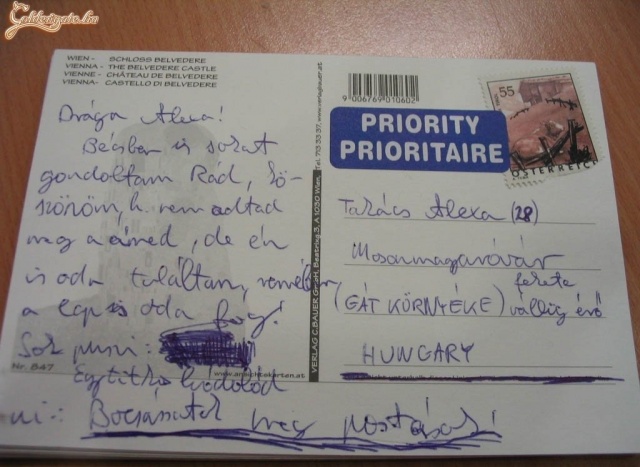 Goldvizsla.hu
WIEN - SCHLOSS BELVEDERE
VIENNA - THE BELVEDERE CASTLE
VIENNE - CHÂTEAU DE BELVEDERE
VIENNA - CASTELLO DI BELVEDERE
Drága Alexa!
Bécsben is sokat
gondoltam Rád, kö-
szönöm, h. nem adtad
meg a címed, de én
is oda találtam, remélem
a lap is oda fog!
Sok puszi:
Egy titkos hódolód
ui.: Bocsássatok meg postások!
Nr. 847
www.ansichtskarten.at
VERLAG C. BAUER GmbH, Beatrixg. 3, A 1030 Wien, Tel. 713 33 37, www.verlagbauer.at
9 006769 010602
PRIORITY
PRIORITAIRE
55
ÖSTERREICH
Takács Alexa (28)
Mosonmagyaróvár
(GÁT KÖRNYÉKE) fekete vállig érő
HUNGARY